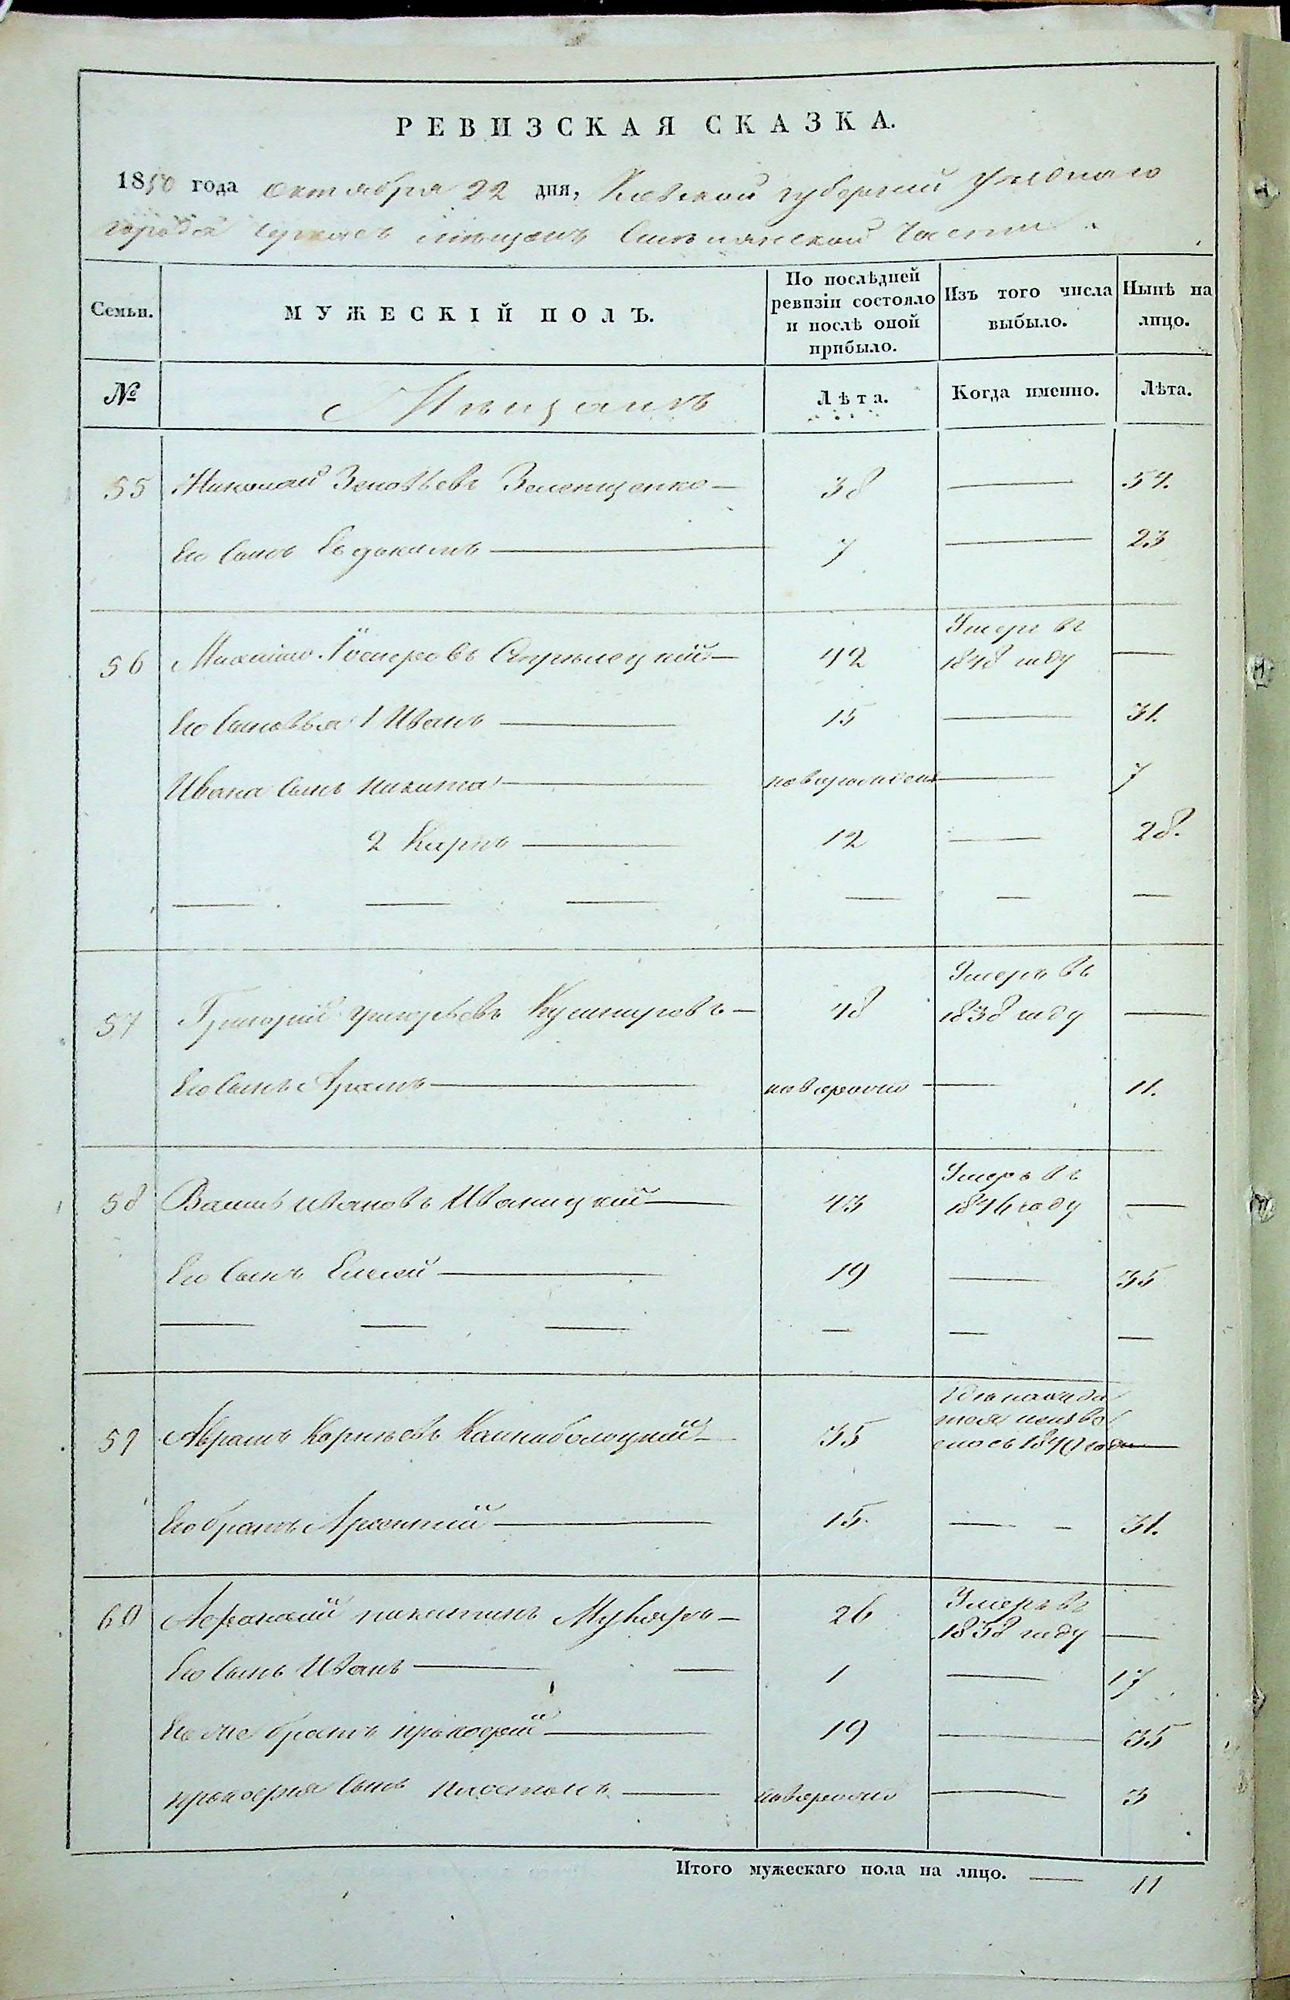 РЕВИЗСКАЯ СКАЗКА.
1850 года октября 22 дня, Киевской губернии уезднаго
города Черкасъ мѣщанъ Смѣлянской части
Семьи. МУЖЕСКІЙ ПОЛЪ. По послѣдней ревизіи состояло и послѣ оной прибыло. Изъ того числа выбыло. Нынѣ на лицо.
№ Мѣщанъ Лѣта. Когда именно. Лѣта.
55 Николай Зеленщенко 38 54.
Его сынъ Евдокимъ 7 23
56 42 Умеръ въ 1848 году
Его сыновья 1 Иванъ 15 31.
Ивана сынъ Никита новорожден 7
2 Карпъ 12 28.
57 Григорій Григорьевъ Кушнировъ 48 Умеръ въ 1838 году
Его сынъ новорожно 11.
58 Ивановъ Иваницкій 43 Умеръ въ 1846 году
Его сынъ Елисей 19 35
59 Абрамъ Корнѣевъ 35 1840 года
Его братъ Арсентій 15. 31.
60 Афанасій Никитинъ 26 Умеръ въ 1838 году
Его сынъ Иванъ 1 17
Его же братъ Прокофій 19 35
Прокофія сынъ новорожно 3
Итого мужескаго пола на лицо. 11